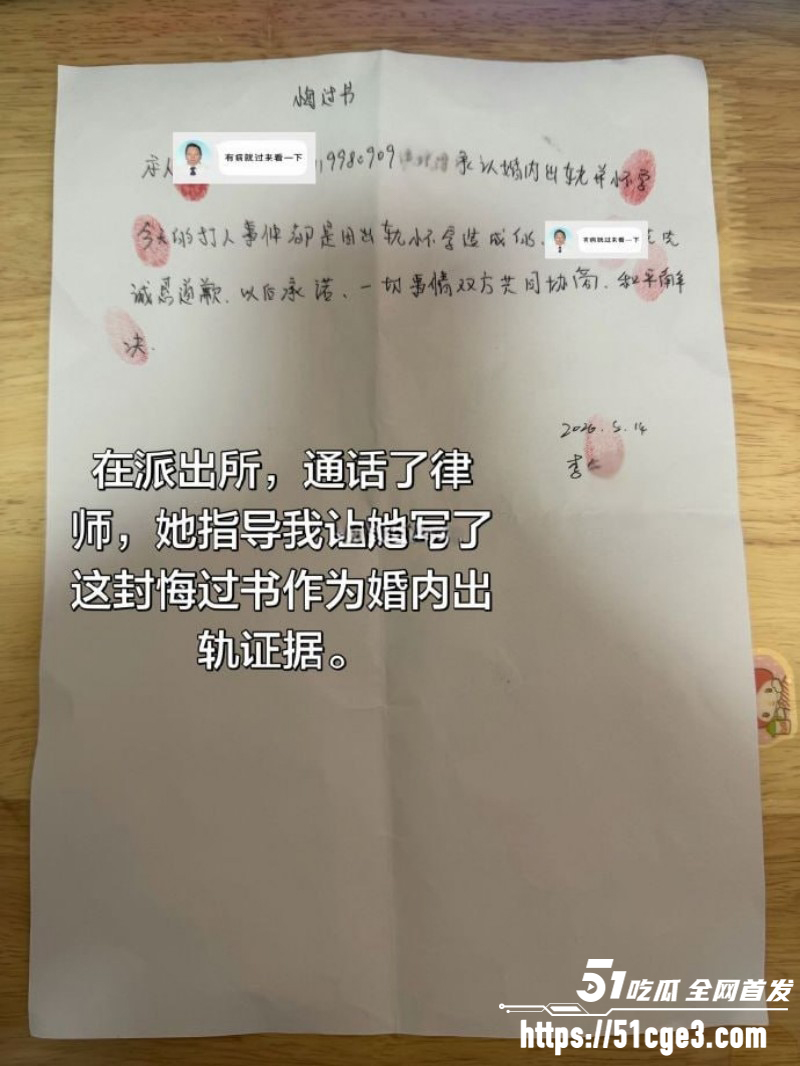 悔过书
本人 有病就过来看一下 19980909 承认婚内出轨并怀孕
今天的打人事件都是因出轨怀孕造成的、 有病就过来看一下 先
诚恳道歉、以后承诺、一切事情双方共同协商、和平解
决.
2026.5.14
李
在派出所，通话了律
师，她指导我让她写了
这封悔过书作为婚内出
轨证据。
51吃瓜 全网首发
https://51cge3.com